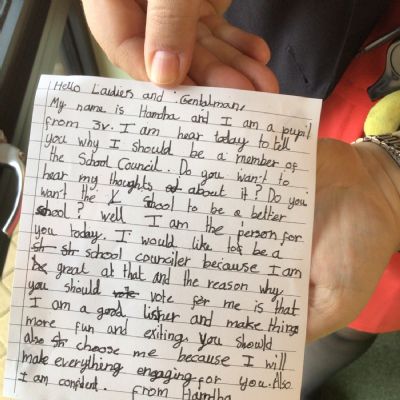 Hello Ladies and Gentalman,
My name is Hamdha and I am a pupil
from 3v. I am hear today to tell
you why I should be a member of
the School Council. Do you wan't to
hear my thoughts about it? Do you
wan't the School to be a better
shool? well I am the person for
you today. I would like to be a
school counciler because I am
great at that and the reason why
you should vote for me is that
I am a good lisher and make things
more fun and exiting. you should
also choose me because I will
make everything engaging for you. Also
I am confident. from Hamdha